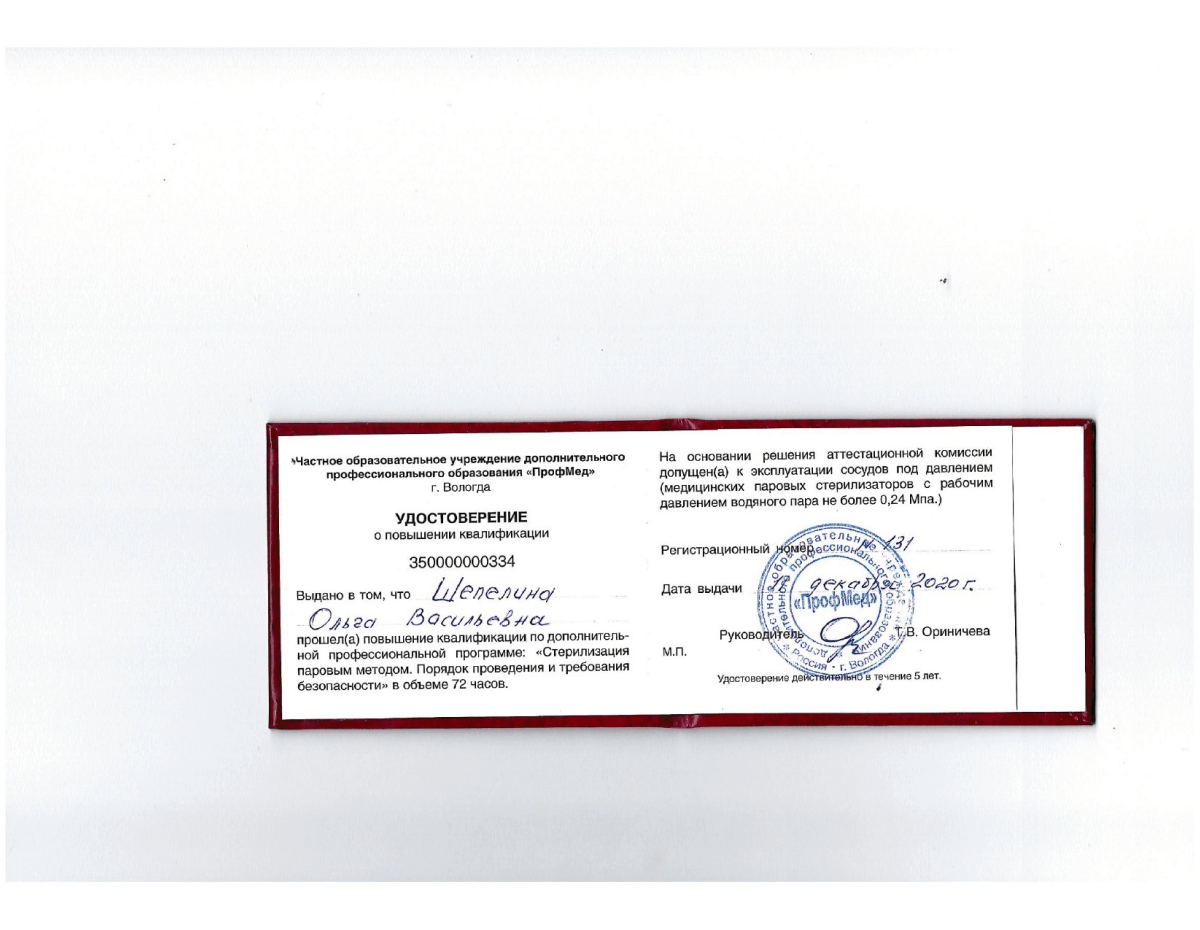 Частное образовательное учреждение дополнительного
профессионального образования «ПрофМед»
г. Вологда
УДОСТОВЕРЕНИЕ
о повышении квалификации
350000000334
Выдано в том, что Шепелина
Ольга Васильевна
прошел(а) повышение квалификации по дополнитель-
ной профессиональной программе: «Стерилизация
паровым методом. Порядок проведения и требования
безопасности» в объеме 72 часов.
На основании решения аттестационной комиссии
допущен(а) к эксплуатации сосудов под давлением
(медицинских паровых стерилизаторов с рабочим
давлением водяного пара не более 0,24 Мпа.)
Регистрационный номер 131
Дата выдачи декабря 2020 г.
«ПрофМед»
Руководитель Т.В. Ориничева
М.П.
Россия · г. Вологда
Удостоверение действительно в течение 5 лет.